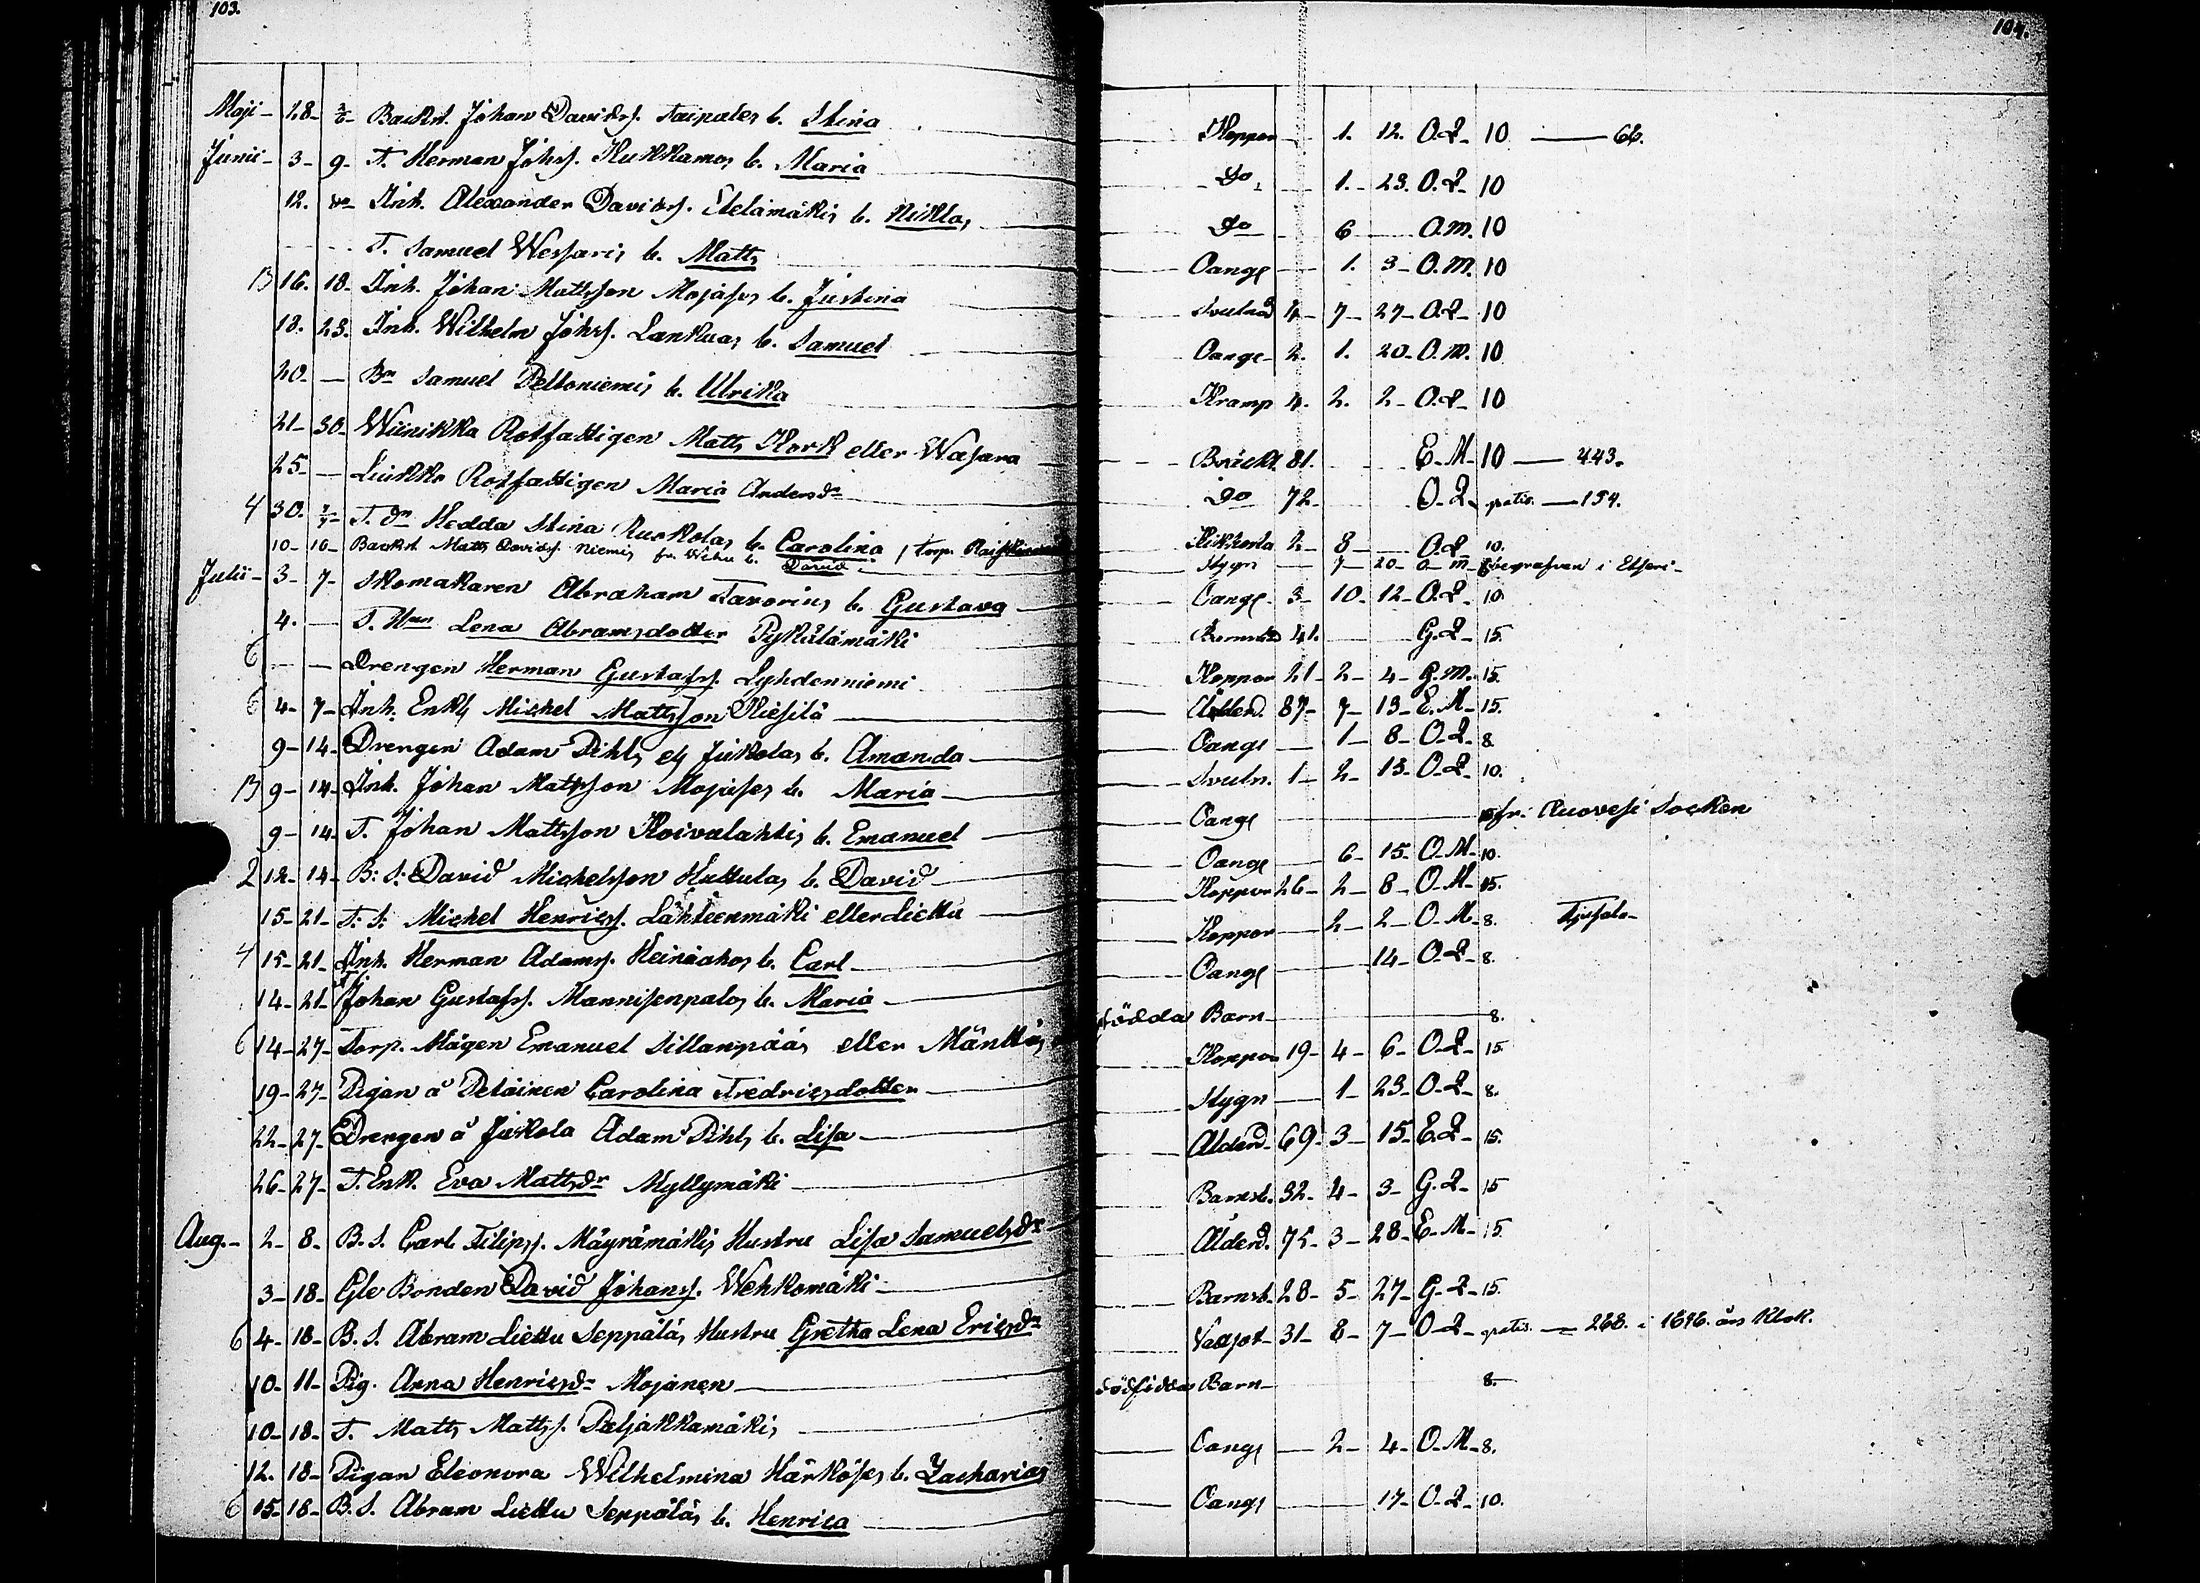 103.
Maji - 18- 2/6- Backst. Johan Davidss. Taipales b. Stina
Junii- 3- 9- T. Herman Johss. Kukkamos b. Maria
12. do Inh. Alexander Davidss. Etelämäkis b. Nicklas
T. Samuel Wessaris b. Matts
13 16. 18- Inh. Johan Mattsson Mojases b. Justina
18. 23. Inh. Wilhelm Johss. Lankuas b. Samuel
20- — Bn Samuel Peltoniemis b. Ulrika
21- 30- Wiinikka Rotfattigen Matts Kork eller Wasara
25- — Liukko Rotfattigen Maria Andersdr
4 30. T. dr Hedda Stina Ruokolas b. Carolina
10- 16- Backst. Matts Davidss. Niemis fr. b. David
Julii- 3- 7- Skomakaren Abraham Tavorins b. Gustava
4. — T. Hun Lena Abramsdotter Pykälämäki
6 — Drengen Herman Gustafss. Lyhdenniemi
6 4- 7- Inh. Enkl. Michel Mattsson Kiesilä
9- 14- Drengen Adam Pihls Jukolas b. Amanda
13 9- 14- Inh. Johan Mattsson Mojases b. Maria
9- 14- T. Johan Mattsson Koivulahtis b. Emanuel
2 12- 14- B: S: David Michelsson Huttulas b. David
15- 21- T: S: Michel Henricss. Lähteenmäki eller Liettu
4 15- 21- Inh. Herman Adamss. Heinäahos b. Carl
14- 21- Johan Gustafss. Mannisenpalos b. Maria
6 14- 27- Torp. Mågen Emanuel Sillanpääs eller Mänttäs
19- 27- Pigan å Peläinen Carolina Fredricsdotter
22- 27- Drengen å Jukola Adam Pihls b. Lisa
26- 27- T. Enk. Eva Mattsdr Myllymäki
Aug.- 2- 8- B. S. Carl Filipss. Mäyrämäkis Hustru Lisa Samuelsdr
3- 18- Gle Bonden David Johanss. Wehkomäki
6 4- 18- B. S. Abram Liettu Seppäläs Hustru Gretha Lena Ericsdr
10- 11- Pig. Anna Henricsdr Mojanen
10- 18- T. Matts Mattss. Paljakkamäkis
12. 18- Pigan Eleonora Wilhelmina Härköses b. Zacharias
6 15- 18- B. S. Abram Liettu Seppäläs b. Henrica
104.
Koppor — 1. 12. O.Q- 10 — 66.
Do — 1. 23. O.Q- 10
Do 6 — O.M. 10
Oange — 1. 3- O.M. 10
Svulnad 4- 7- 27- O.Q- 10
Oange- 2. 1. 20- O.M. 10
Kramp 4. 2. 2- O.Q- 10
Bråckt. 81. E.M- 10 — 443.
Do 72- O.Q- gratis. — 154.
Kikhosta 2- 8- O.Q- 10.
Stygn — 7- 20- O- M- begrafven i Etseri-
Oange- 3- 10- 12- O.Q- 10.
Barnsbd 41. G.Q- 15.
Koppor 21- 2- 4- G.M. 15.
Ålderd. 87- 7- 13- E.M- 15.
Oange — 1- 8- O-Q- 8.
Svuln. 1- 2- 13- O.Q- 10.
Oange — fr. Ruovesi Socken
Oange — 6- 15- O-M- 10.
Koppor 26- 2- 8- O-M- 15.
Koppor — 2- 2- O-M- 8.
Oange — 14- O-Q- 8.
födda Barn — 8.
Koppor 19- 4- 6- O-Q- 15.
Stygn — 1- 23- O-Q- 8.
Ålderd- 69- 3- 15- E.Q- 15.
Barnsb. 32- 4- 3- G.Q- 15
Ålderd. 75- 3- 28- E-M- 15.
Barnsb- 28- 5- 27- G-Q- 15.
31- 8- 7- O-Q- gratis. — 268. i 1846. års Klok.
dödfödda Barn — 8.
Oange — 2- 4- O-M- 8.
Oange — 17- O-Q- 10.